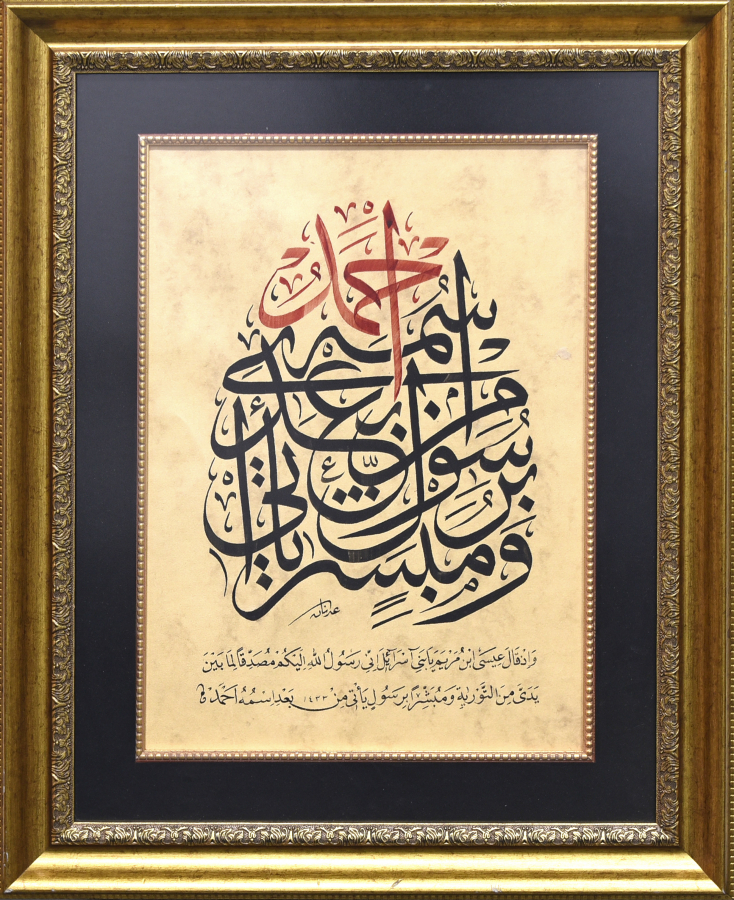 ومبشرا برسول يأتي من بعدي اسمه أحمد
عدنان
وَاِذ قَالَ عيسَى ابن مَريَم يَا بَنى آسرَآئِلَ اِنى رَسولُ الله اِلَيكُم مُصَدِقًا لِمَا بَيْنَ
يَدَىَّ مِنَ التَّوْرٰيةِ وَمُبَشِّرًا بِرَسُولٍ يَأتى مِنْ ١٤٣٣ بَعْدِ اِسْمُهُ اَحمَدْ